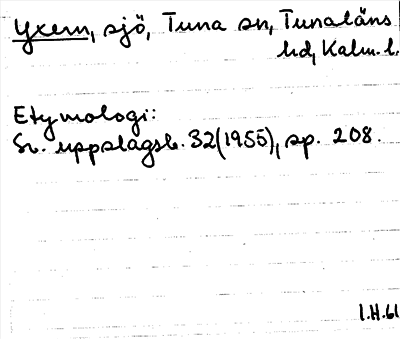 Yxern, sjö, Tuna sn, Tunaläns
hd, Kalm. l.
Etymologi:
Sv. uppslagsb. 32(1955), sp. 208.
I.H.61